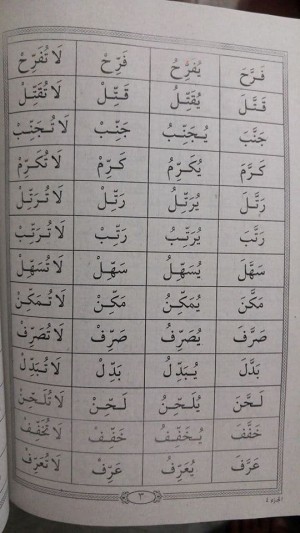 فَرَّحَ يُفَرِّحُ فَرِّحْ لَا تُفَرِّحْ
قَتَّلَ يُقَتِّلُ قَتِّلْ لَا تُقَتِّلْ
جَنَّبَ يُجَنِّبُ جَنِّبْ لَا تُجَنِّبْ
كَرَّمَ يُكَرِّمُ كَرِّمْ لَا تُكَرِّمْ
رَتَّلَ يُرَتِّلُ رَتِّلْ لَا تُرَتِّلْ
رَتَّبَ يُرَتِّبُ رَتِّبْ لَا تُرَتِّبْ
سَهَّلَ يُسَهِّلُ سَهِّلْ لَا تُسَهِّلْ
مَكَّنَ يُمَكِّنُ مَكِّنْ لَا تُمَكِّنْ
صَرَّفَ يُصَرِّفُ صَرِّفْ لَا تُصَرِّفْ
بَدَّلَ يُبَدِّلُ بَدِّلْ لَا تُبَدِّلْ
لَحَّنَ يُلَحِّنُ لَحِّنْ لَا تُلَحِّنْ
خَفَّفَ يُخَفِّفُ خَفِّفْ لَا تُخَفِّفْ
عَرَّفَ يُعَرِّفُ عَرِّفْ لَا تُعَرِّفْ
٣